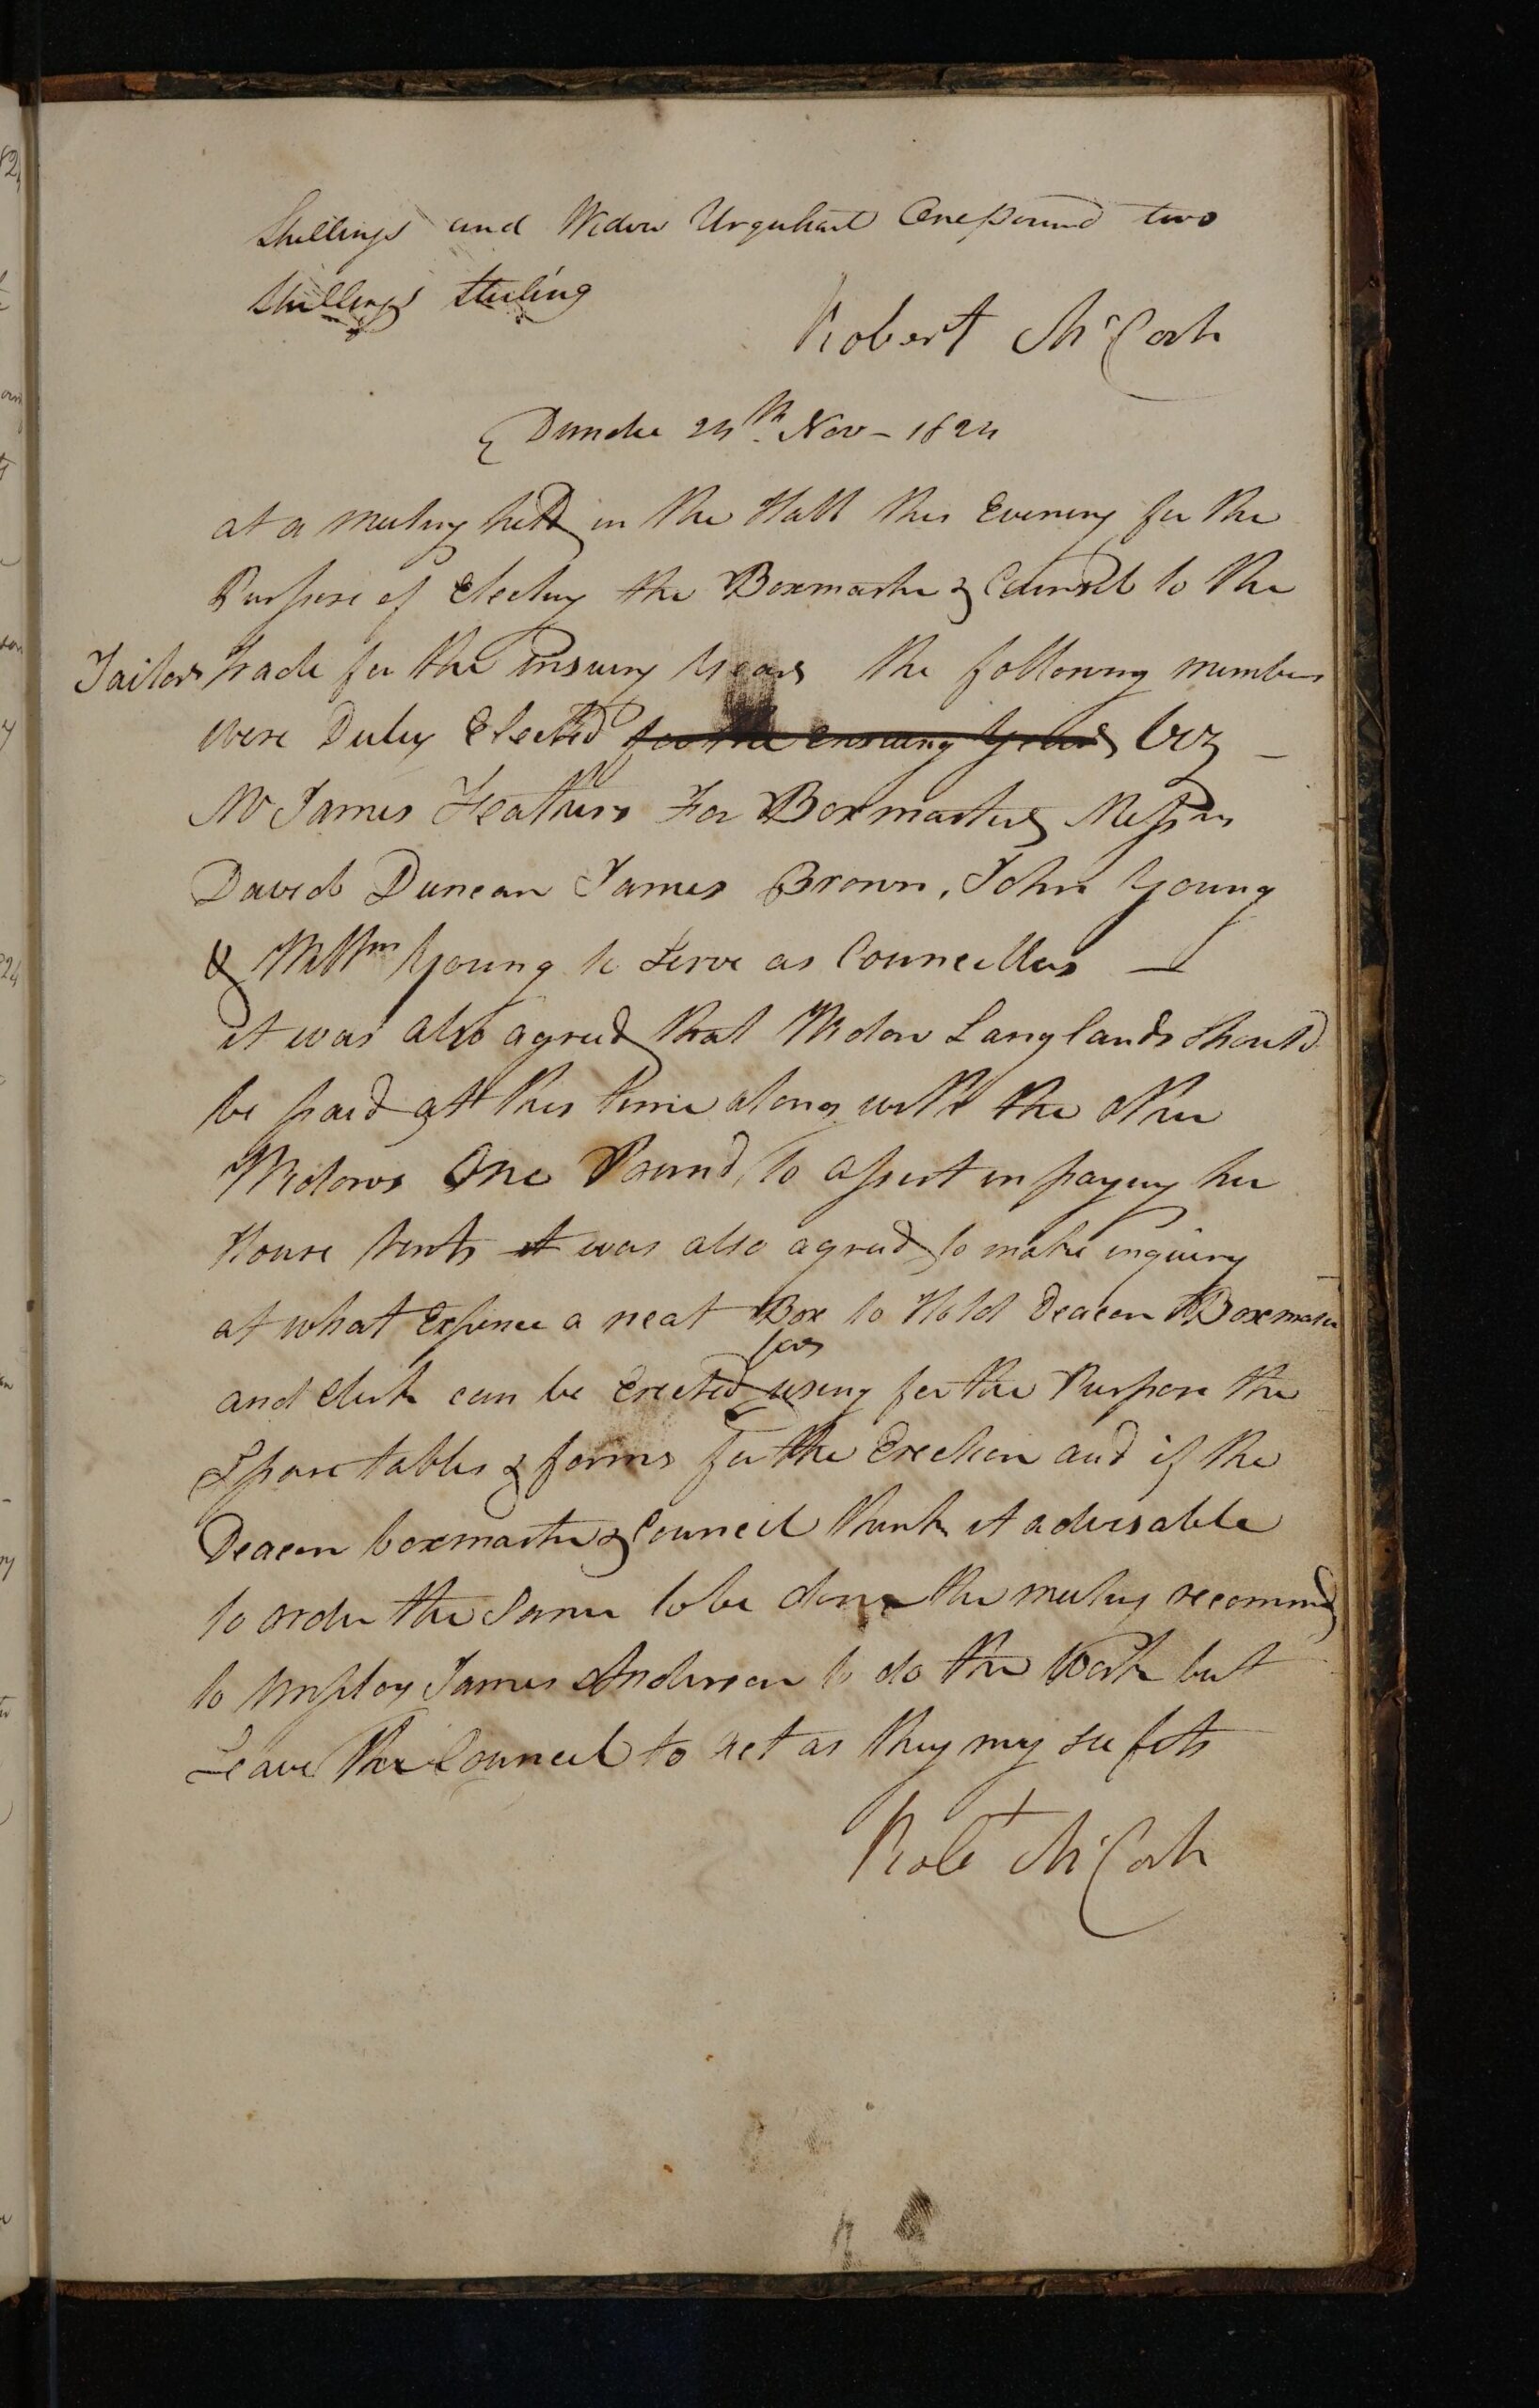 Shillings and Widow Urquhart One pound two
Shillings Sterling
Robert McCosh
Dundee 24th Nov - 1824
at a meeting held in the Hall this Evening for the
Purpose of Electing the Boxmaster & Council to the
Tailor trade for the ensuing Year the following members
were Duly Elected for the ensuing Year Viz
Mr James Feathers For Boxmaster Messrs
David Duncan James Brown, John Young
& Willm Young to Serve as Councillors
it was also agreed that Widow Langlands Should
be paid at this time along with the other
Widows One Pound, to assist in paying her
House rents it was also agreed to make inquiry
at what Expence a neat Box to Hold Deacon Boxmaster
and Clerk can be Erected using for the Purpose the
Spare tables & forms for the Erection and if the
Deacon boxmaster & Council think it advisable
to order the Same to be done the meeting recommend
to employ James Anderson to do the Work but
Leave the Council to act as they may see fit
Robt McCosh